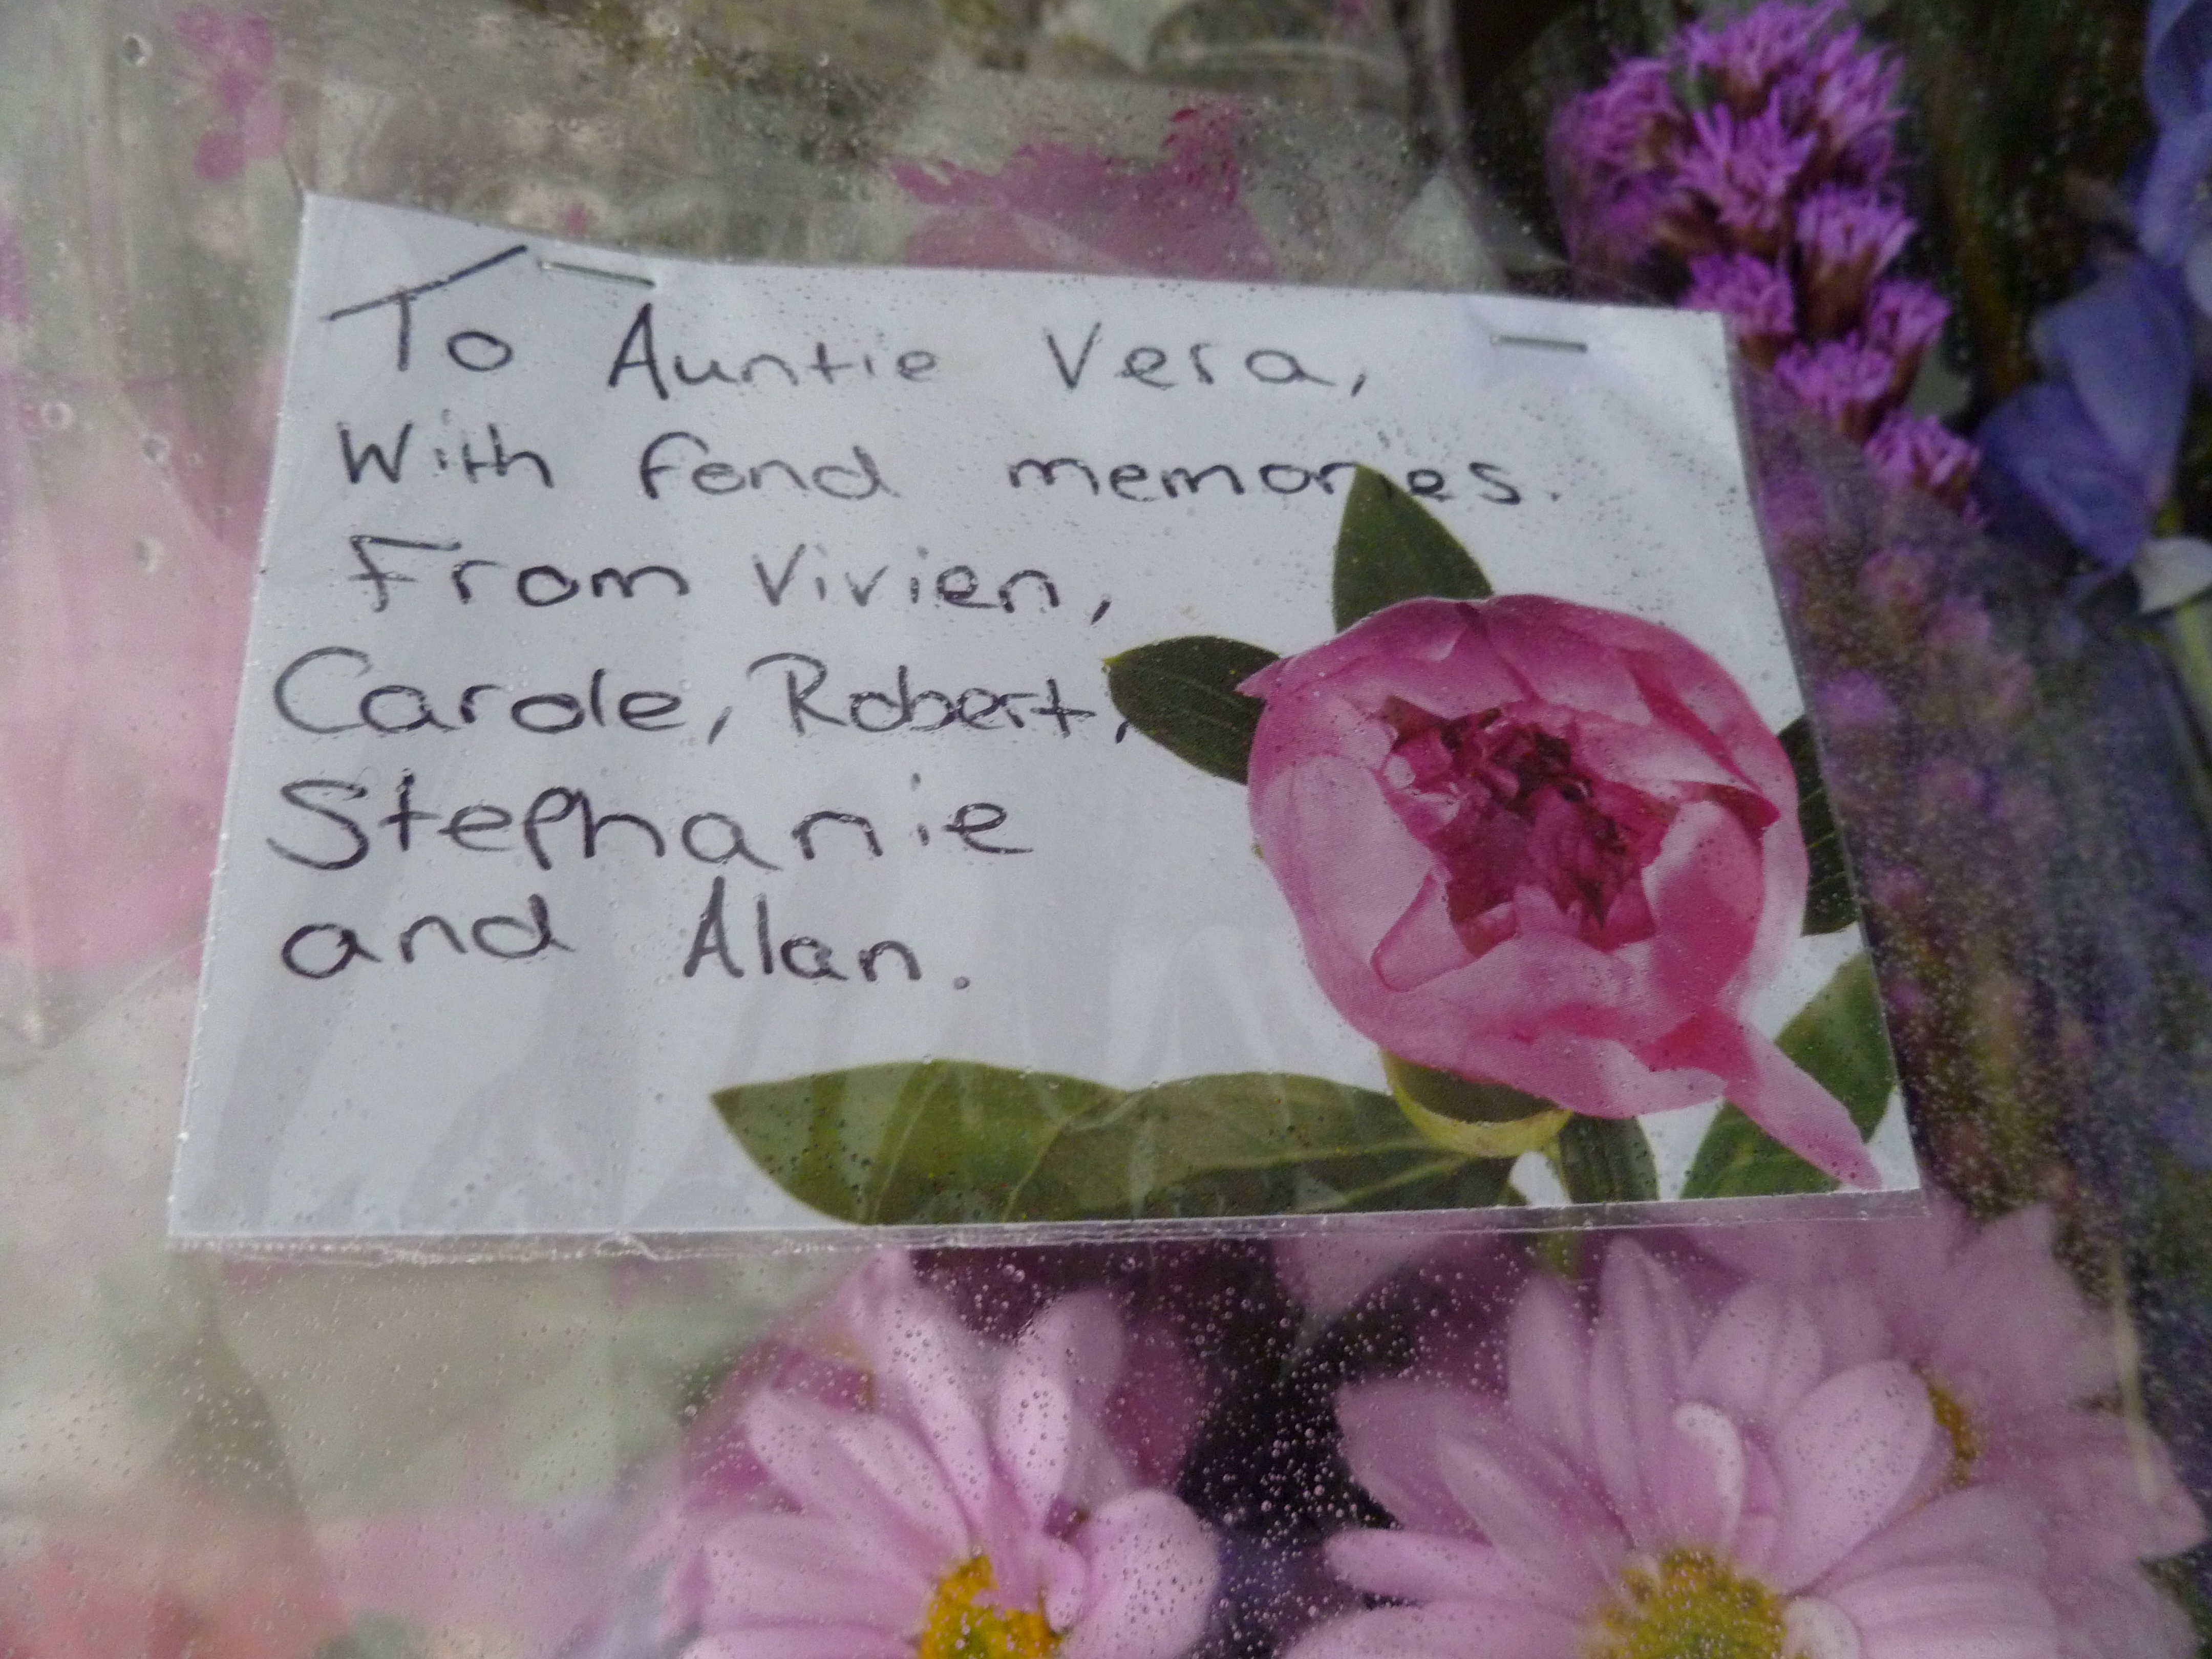 To Auntie Vera,
With fond memories.
From Vivien,
Carole, Robert,
Stephanie
and Alan.